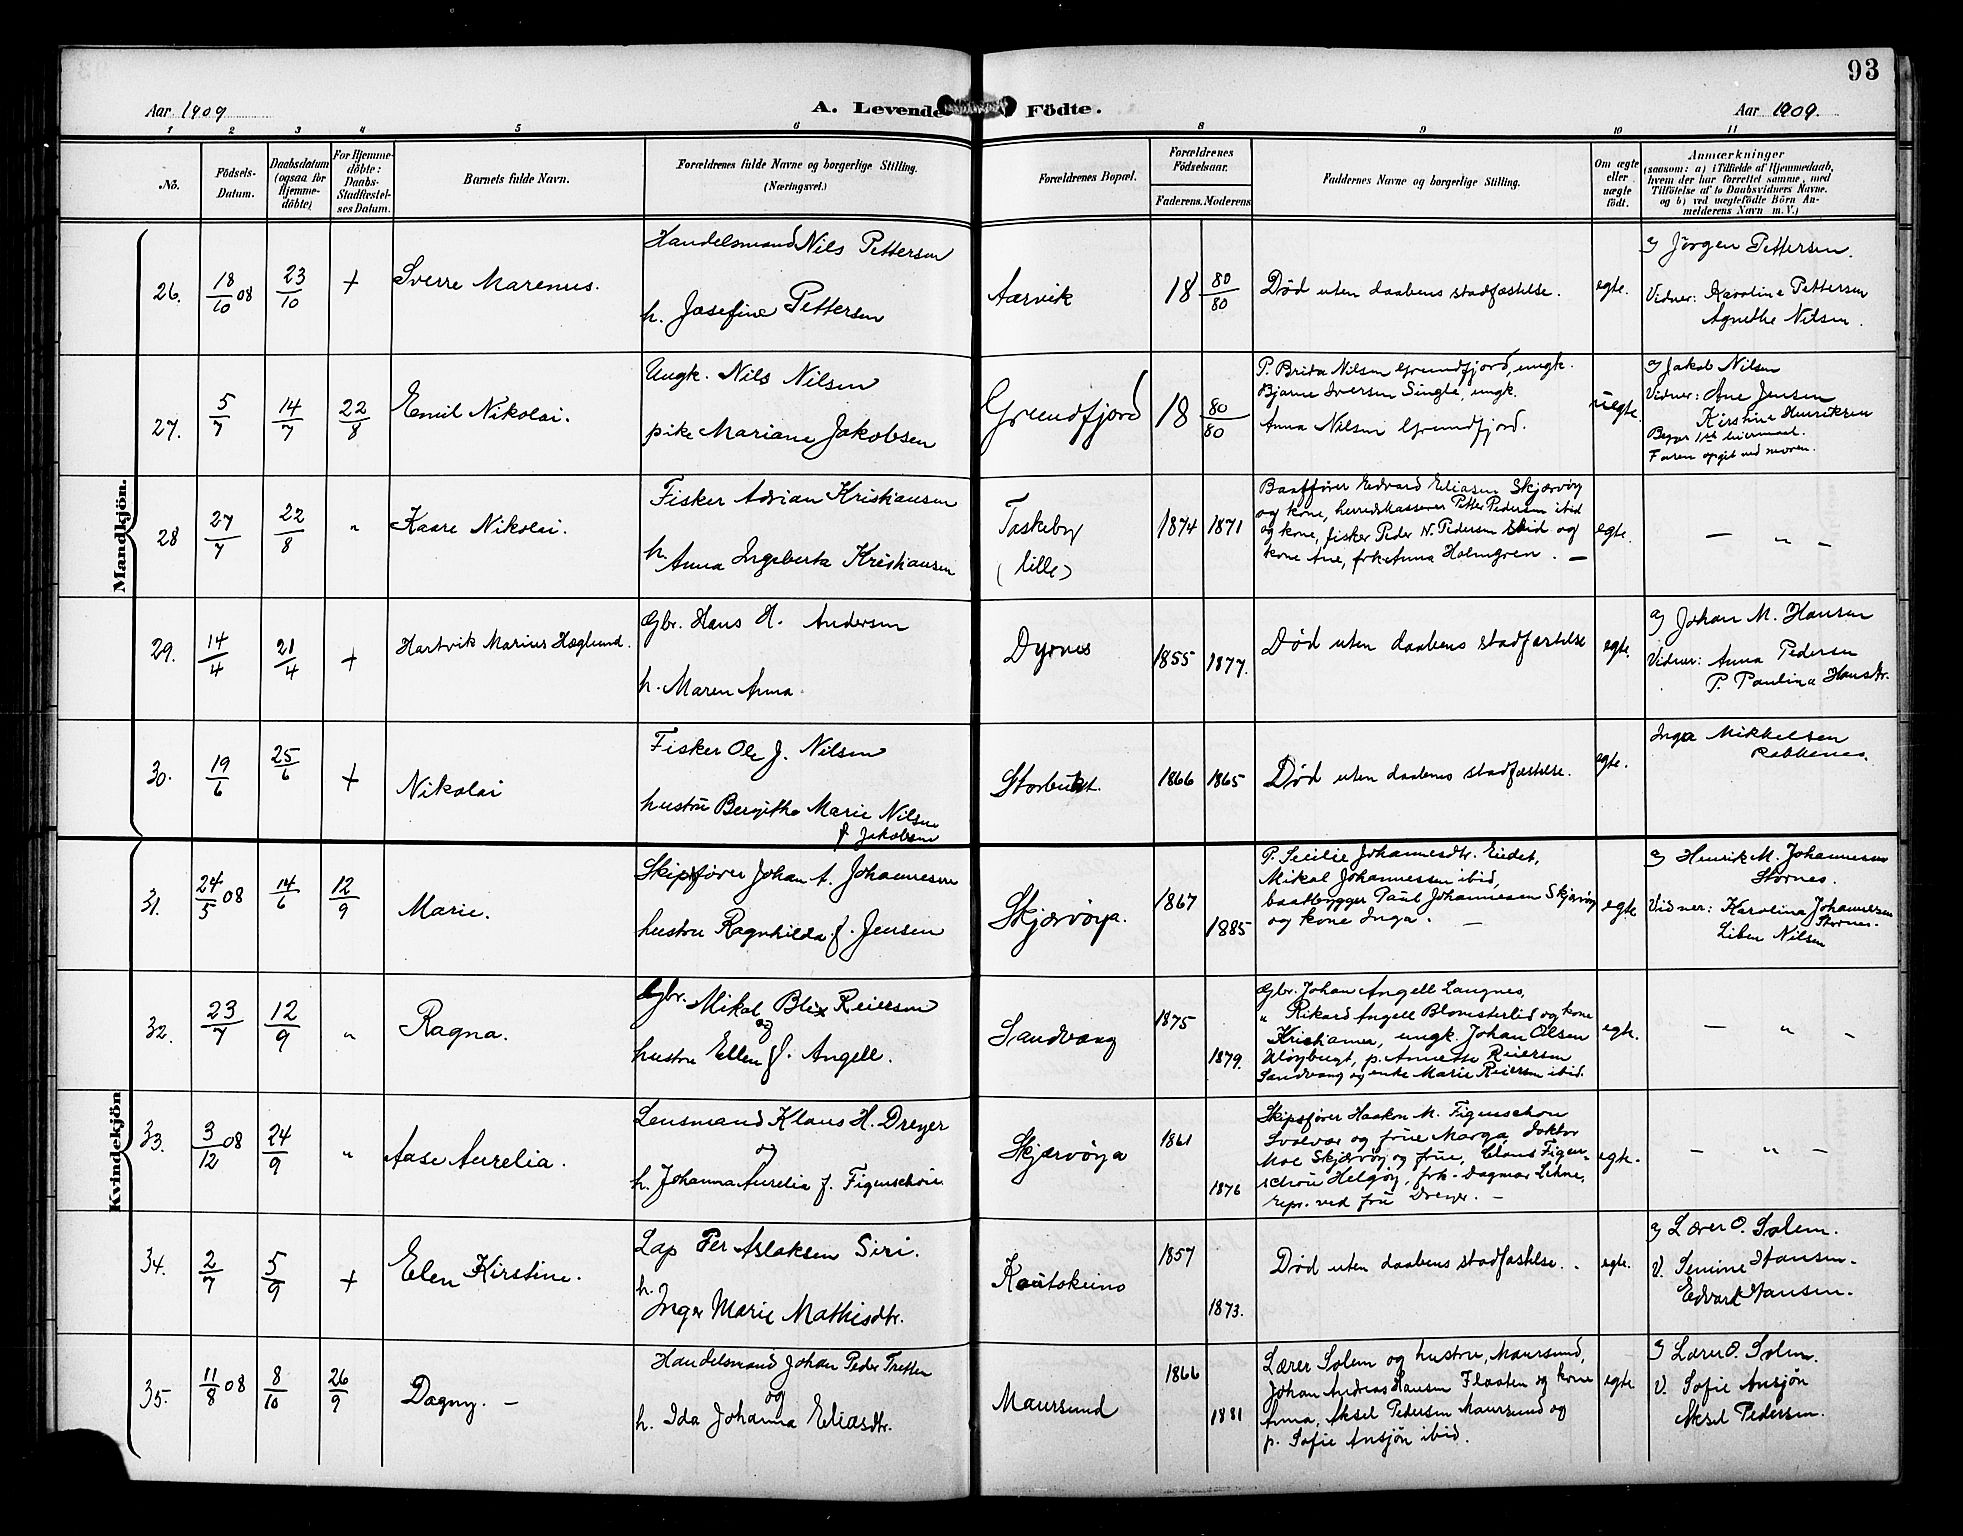 93
Aar 1909
A. Levende Födte.
Aar 1909.
1 2 3 4 5 6 8 9 10 11
No.
Födsels-
Datum.
Daabsdatum
(ogsaa for
Hjemme-
döbte)
For Hjemme-
döbte:
Daabs-
Stadfæstel-
ses Datum.
Barnets fulde Navn.
Forældrenes fulde Navne og borgerlige Stilling.
(Næringsvei.)
Forældrenes Bopæl.
Forældrenes
Födselsaar.
Faderens. Moderens
Faddernes Navne og borgerlige Stilling.
Om ægte
eller
uægte
födt.
Anmærkninger
(saasom: a) i Tilfælde af Hjemmedaab,
hvem der har forrettet samme, med
Tilföielse af to Daabsvidners Navne.
og b) ved uægtefödte Börn An-
melderens Navn m. V.)
Mandkjön.
26. 18/10 08 23/10 + Sverre Marenus.
Handelsmand Nils Pettersen
h. Josefine Pettersen
Aarvik 18 80/80 Död uten daabens stadfæstelse. egte.
a) Jörgen Pettersen.
Vidner: Karoline Pettersen
Agnethe Nilsen.
27. 5/7 14/7 22/8 Emil Nikolai.
Ungk. Nils Nilsen
pike Mariane Jakobsen
Grundfjord 18 80/80
P. Brita Nilsen Grundfjord, ungk.
Bjarne Iversen Single, ungk.
Anna Nilsen Grundfjord.
uegte.
a) Jakob Nilsen
Vidner: Ane Jensen
Kirstine Henriksen
Begges 1ste leiermaal.
Faren opgit ved moren.
28 27/7 22/8 " Kaare Nikolai.
Fisker Adrian Kristiansen
h. Anna Ingeberta Kristiansen
Taskeby
(lille)
1874 1871
Baatförer Edvard Eliasen Skjærvöy
og kone, herredskasserer Petter Pedersen ibid
og kone, fisker Peder N. Pedersen ibid og
kone Ane, frk Anna Holmgren. —
egte. — " —
29. 14/4 21/4 + Hartvik Marius Høglund.
Gbr. Hans H. Andersen
h. Maren Anna.
Dyrnes 1855 1877. Död uten daabens stadfæstelse egte.
a) Johan M. Hansen
Vidner: Anna Pedersen
P. Paulina Hansdtr.
30. 19/6 25/6 + Nikolai
Fisker Ole J. Nilsen
hustru Bergithe Marie Nilsen
f. Jakobsen
Storbukt. 1866 1865 Död uten daabens stadfæstelse. egte.
Inga Mikkelsen
Rakkenes.
Kvindekjön
31. 24/5 08 14/6 12/9 Marie.
Skipsförer Johan A. Johannesen
hustru Ragnhilda f. Jensen
Skjærvöya. 1867 1885
P. Secilie Johannesdtr. Eidet,
Mikal Johannessen ibid,
baatbygger Paul Johannesen Skjærvöy
og kone Inga. —
egte
a) Henrik M. Johannesen
Stornes.
Vidner: Karolina Johannesen
Stornes.
Liben Nilsen
32. 23/7 12/9 " Ragna.
Gbr. Mikal Blix Reiersen
og
hustru Ellen f. Angell.
Sandvang 1875 1879.
Gbr. Johan Angell Langnes,
" Rikard Angell Blomsterlid og kone
Kristianna, ungk. Johan Olsen
Kløybugt, p. Annette Reiersen
Sandvang og enke Marie Reiersen ibid.
egte. — " —
33. 3/12 08 24/9 " Aase Aurelia.
Lensmand Klaus H. Dreyer
og
h. Johanna Aurelia f. Figenschou.
Skjærvöya 1861 1876
Skipsförer Haakon M. Figenschou
Svolvær og frue Marga, doktor
Moe Skjærvöy og frue, Claus Figen-
schou Helgöy, frk. Dagmar Lihne,
repr. ved fru Dreyer. —
egte. — " —
34. 2/7 5/9 + Elen Kirstine.
Lap Per Aslaksen Siri.
h.
Inger Marie Mathisdtr.
Kautokeino 1857 1873. Död uten daabens stadfæstelse. egte.
a) Lærer O. Solem.
V. Semine Hansen.
Edvart Hansen.
35. 11/8 08 8/10 26/9 Dagny. —
Handelsmand Johan Peder Tretten
og
h. Ida Johanna Eliasdtr.
Maursund 1866 1881
Lærer Solem og hustru, Maursund,
Johan Andreas Hansen Flaaten og kone
Anna, Aksel Pedersen Maursund og
p. Sofie Ansjön ibid.
egte
a) Lærer O. Solem.
V. Sofie Ansjön
Aksel Pedersen.